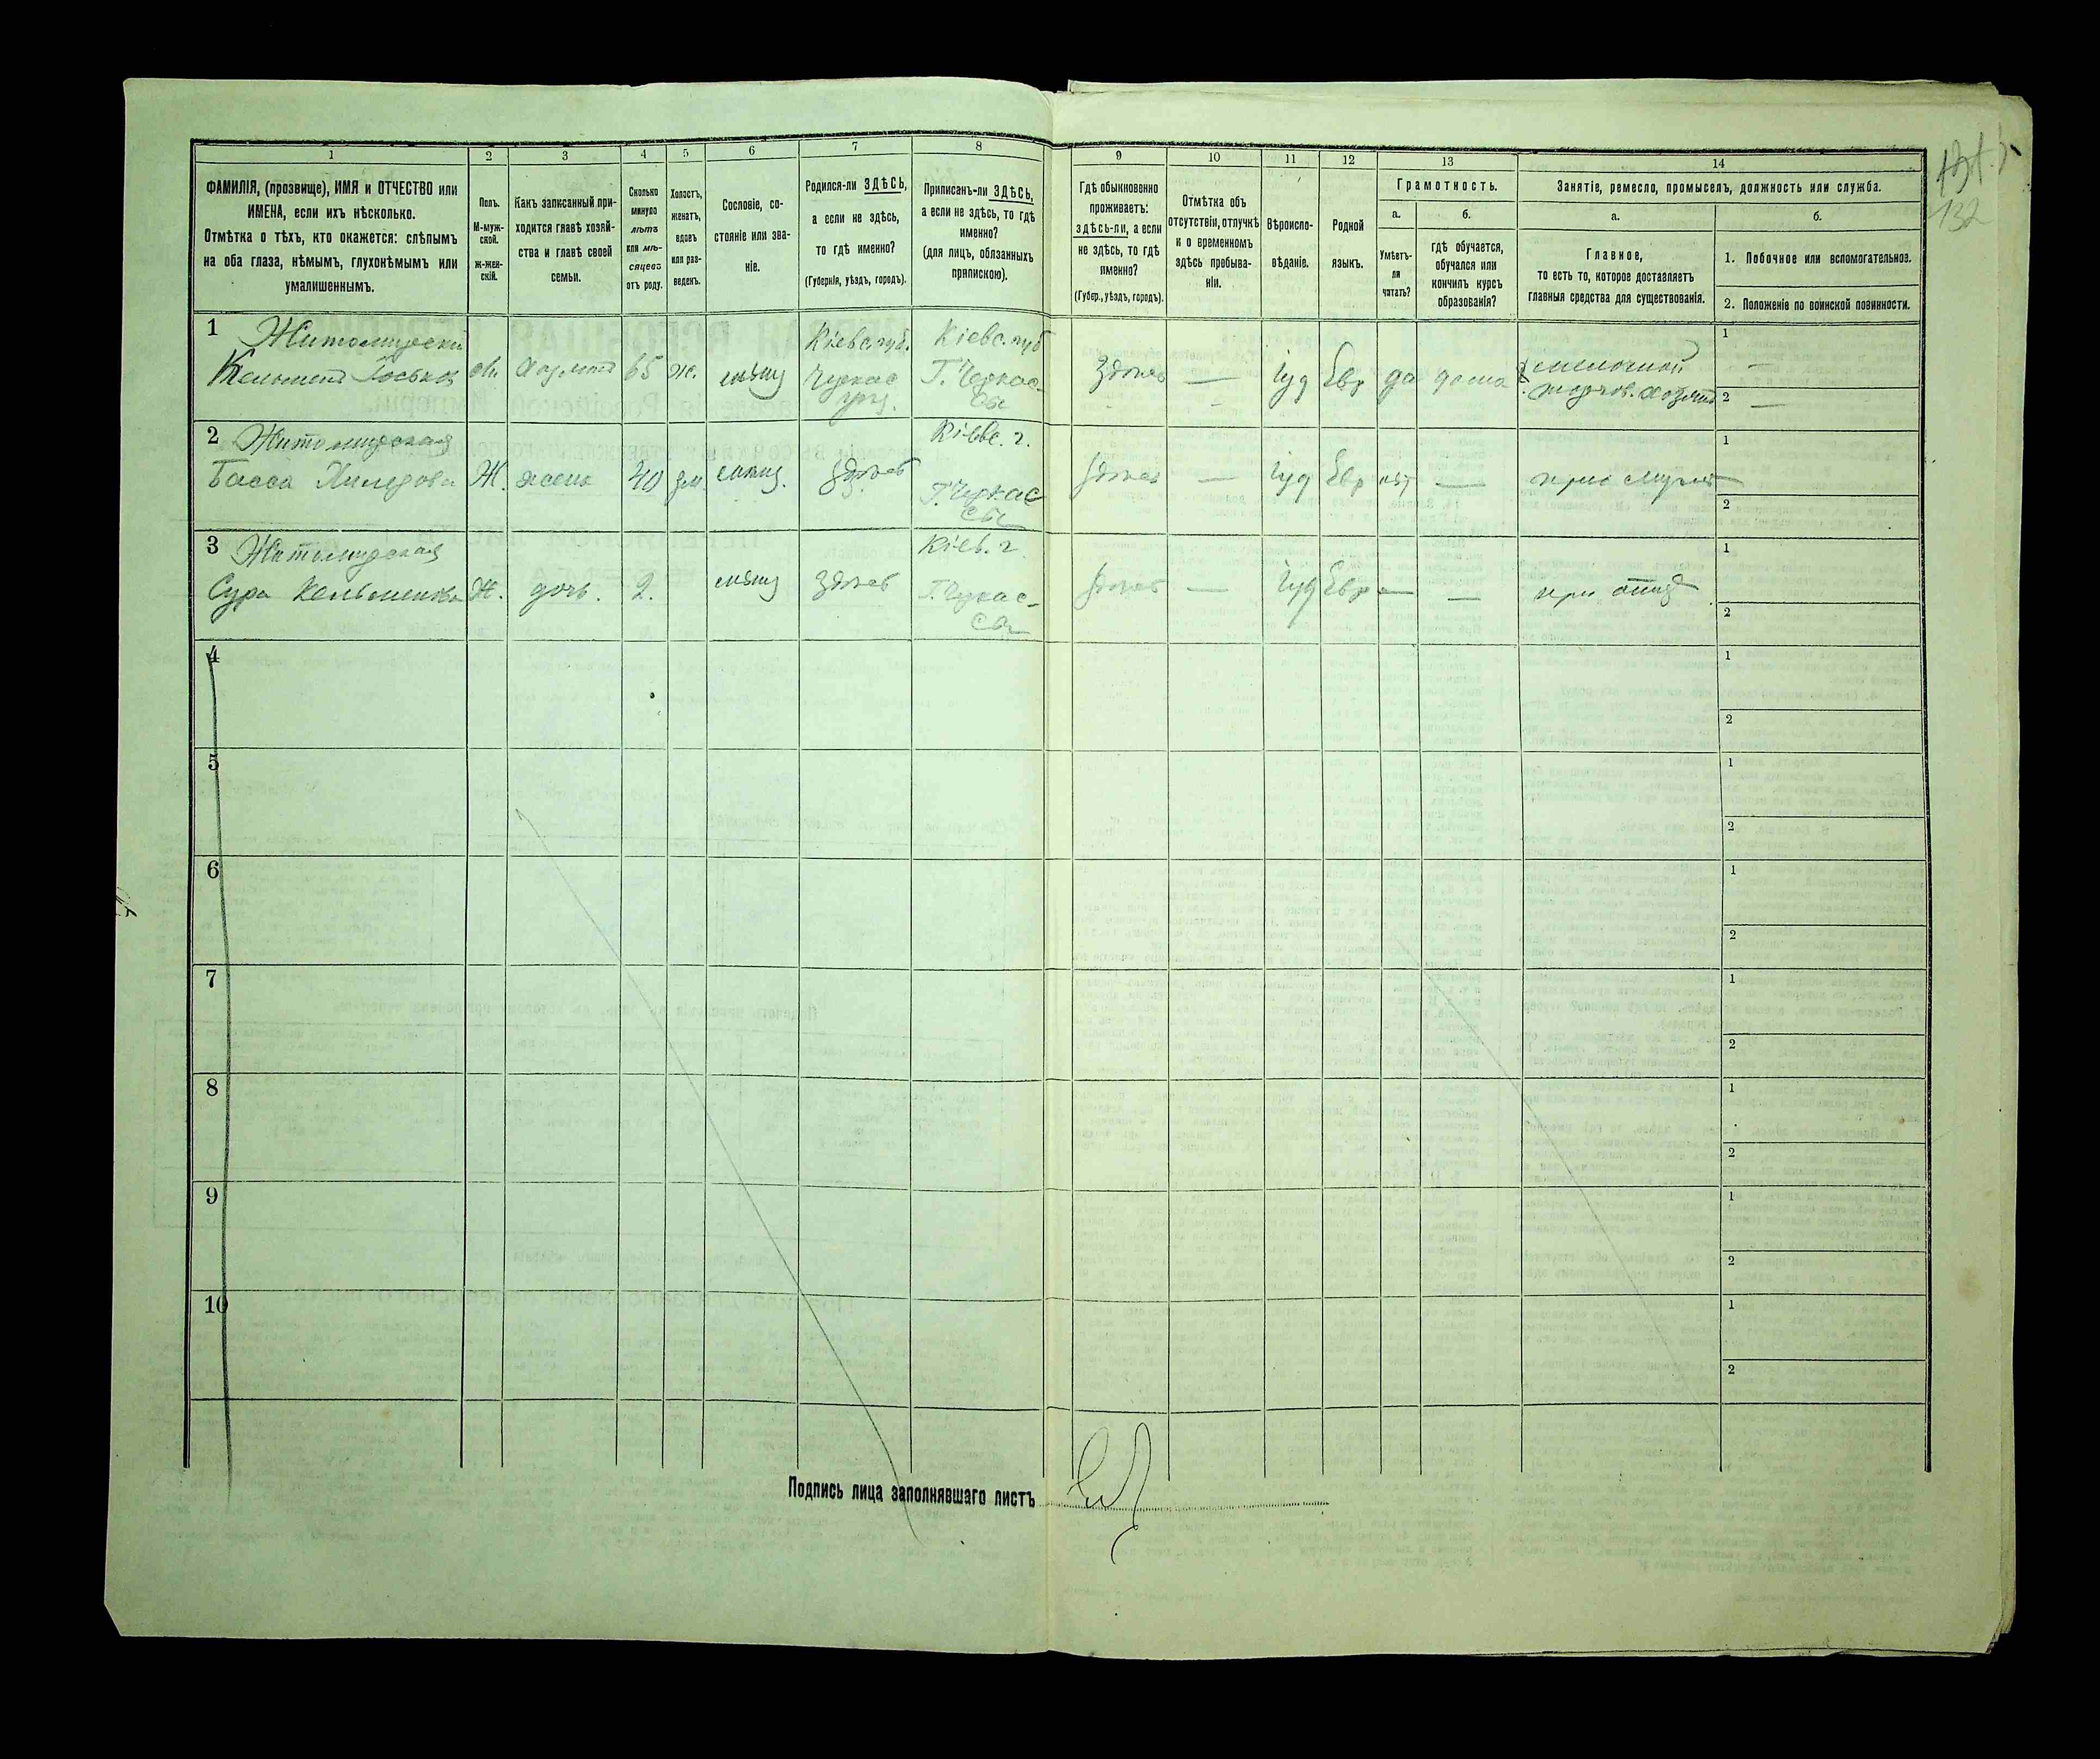 1 2 3 4 5 6 7 8 9 10 11 12 13 14
ФАМИЛІЯ, (прозвище), ИМЯ и ОТЧЕСТВО или
ИМЕНА, если ихъ нѣсколько.
Отмѣтка о тѣхъ, кто окажется: слѣпымъ
на оба глаза, нѣмымъ, глухонѣмымъ или
умалишеннымъ.
Полъ.
М-муж-
ской.
ж-жен-
скій.
Какъ записанный при-
ходится главѣ хозяй-
ства и главѣ своей
семьи.
Сколько
минуло
лѣтъ
или мѣ-
сяцевъ
отъ роду.
Холостъ,
женатъ,
вдовъ
или раз-
веденъ.
Сословіе, со-
стояніе или зва-
ніе.
Родился-ли ЗДѢСЬ,
а если не здѣсь,
то гдѣ именно?
(Губернія, уѣздъ, городъ).
Приписанъ-ли ЗДѢСЬ,
а если не здѣсь, то гдѣ
именно?
(для лицъ, обязанныхъ
припискою).
Гдѣ обыкновенно
проживаетъ:
здѣсь-ли, а если
не здѣсь, то гдѣ
именно?
(Губер., уѣздъ, городъ).
Отмѣтка объ
отсутствіи, отлучкѣ
и о временномъ
здѣсь пребыва-
ніи.
Вѣроиспо-
вѣданіе.
Родной
языкъ.
Грамотность.
а.
Умѣетъ-
ли
читать?
б.
гдѣ обучается,
обучался или
кончилъ курсъ
образованія?
Занятіе, ремесло, промыселъ, должность или служба.
а.
Главное,
то есть то, которое доставляетъ
главныя средства для существованія.
б.
1. Побочное или вспомогательное.
2. Положеніе по воинской повинности.
132
1 Житомирски
65 ж. мѣщ
Кіевс. губ.
Черкас
уѣз.
Кіевс. губ
Г. Черкас-
сы
здѣсь — Іуд Евр да дома
мелочной
торгов. хозяинъ
1 —
2 —
2 Житомирская
Басса Ж. жена 40 зам. мѣщ. здѣсь
Кіевс. г.
Г. Черкас
сы
здѣсь — Іуд Евр нѣт — при мужѣ
1
2
3 Житомирская
Сура Ж. дочь. 2. мѣщ здѣсь
Кіев. г.
Г. Черкас-
сы
здѣсь — Іуд Евр — — при отцѣ
1
2
4
1
2
5
1
2
6
1
2
7
1
2
8
1
2
9
1
2
10
1
2
Подпись лица заполнявшаго листъ